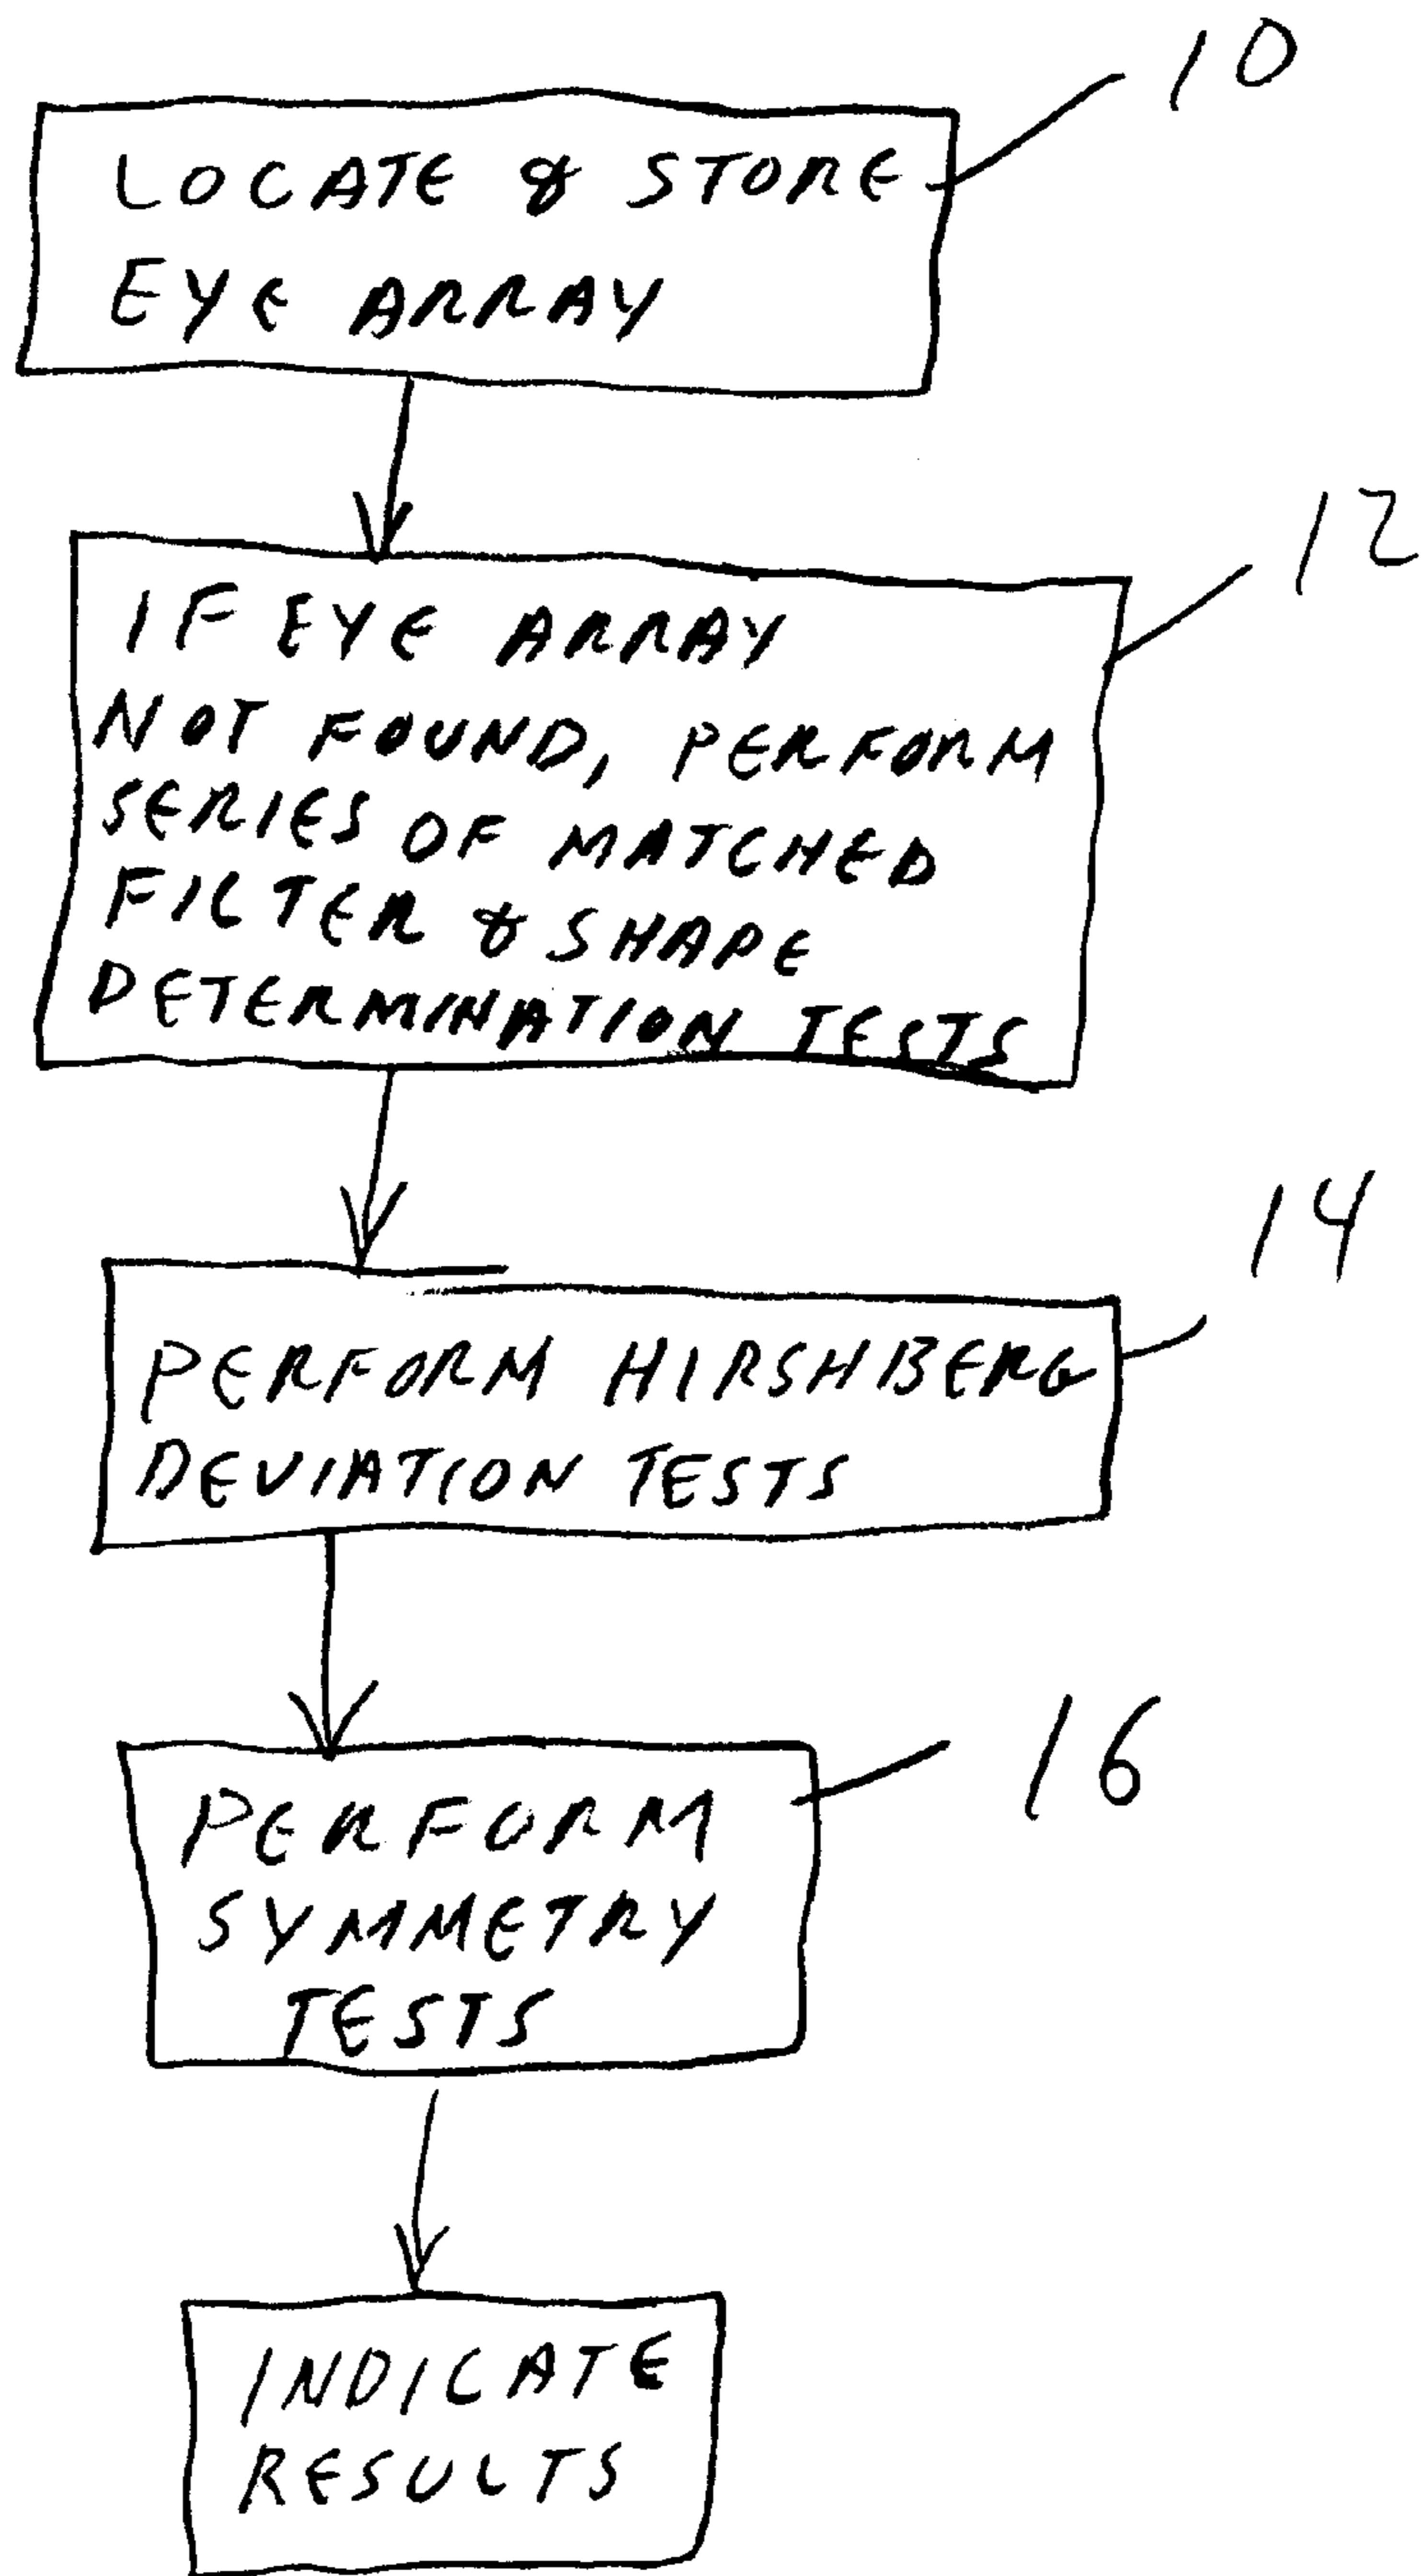 10
LOCATE & STORE
EYE ARRAY
12
IF EYE ARRAY
NOT FOUND, PERFORM
SERIES OF MATCHED
FILTER & SHAPE
DETERMINATION TESTS
14
PERFORM HIRSHBERG
DEVIATION TESTS
16
PERFORM
SYMMETRY
TESTS
INDICATE
RESULTS